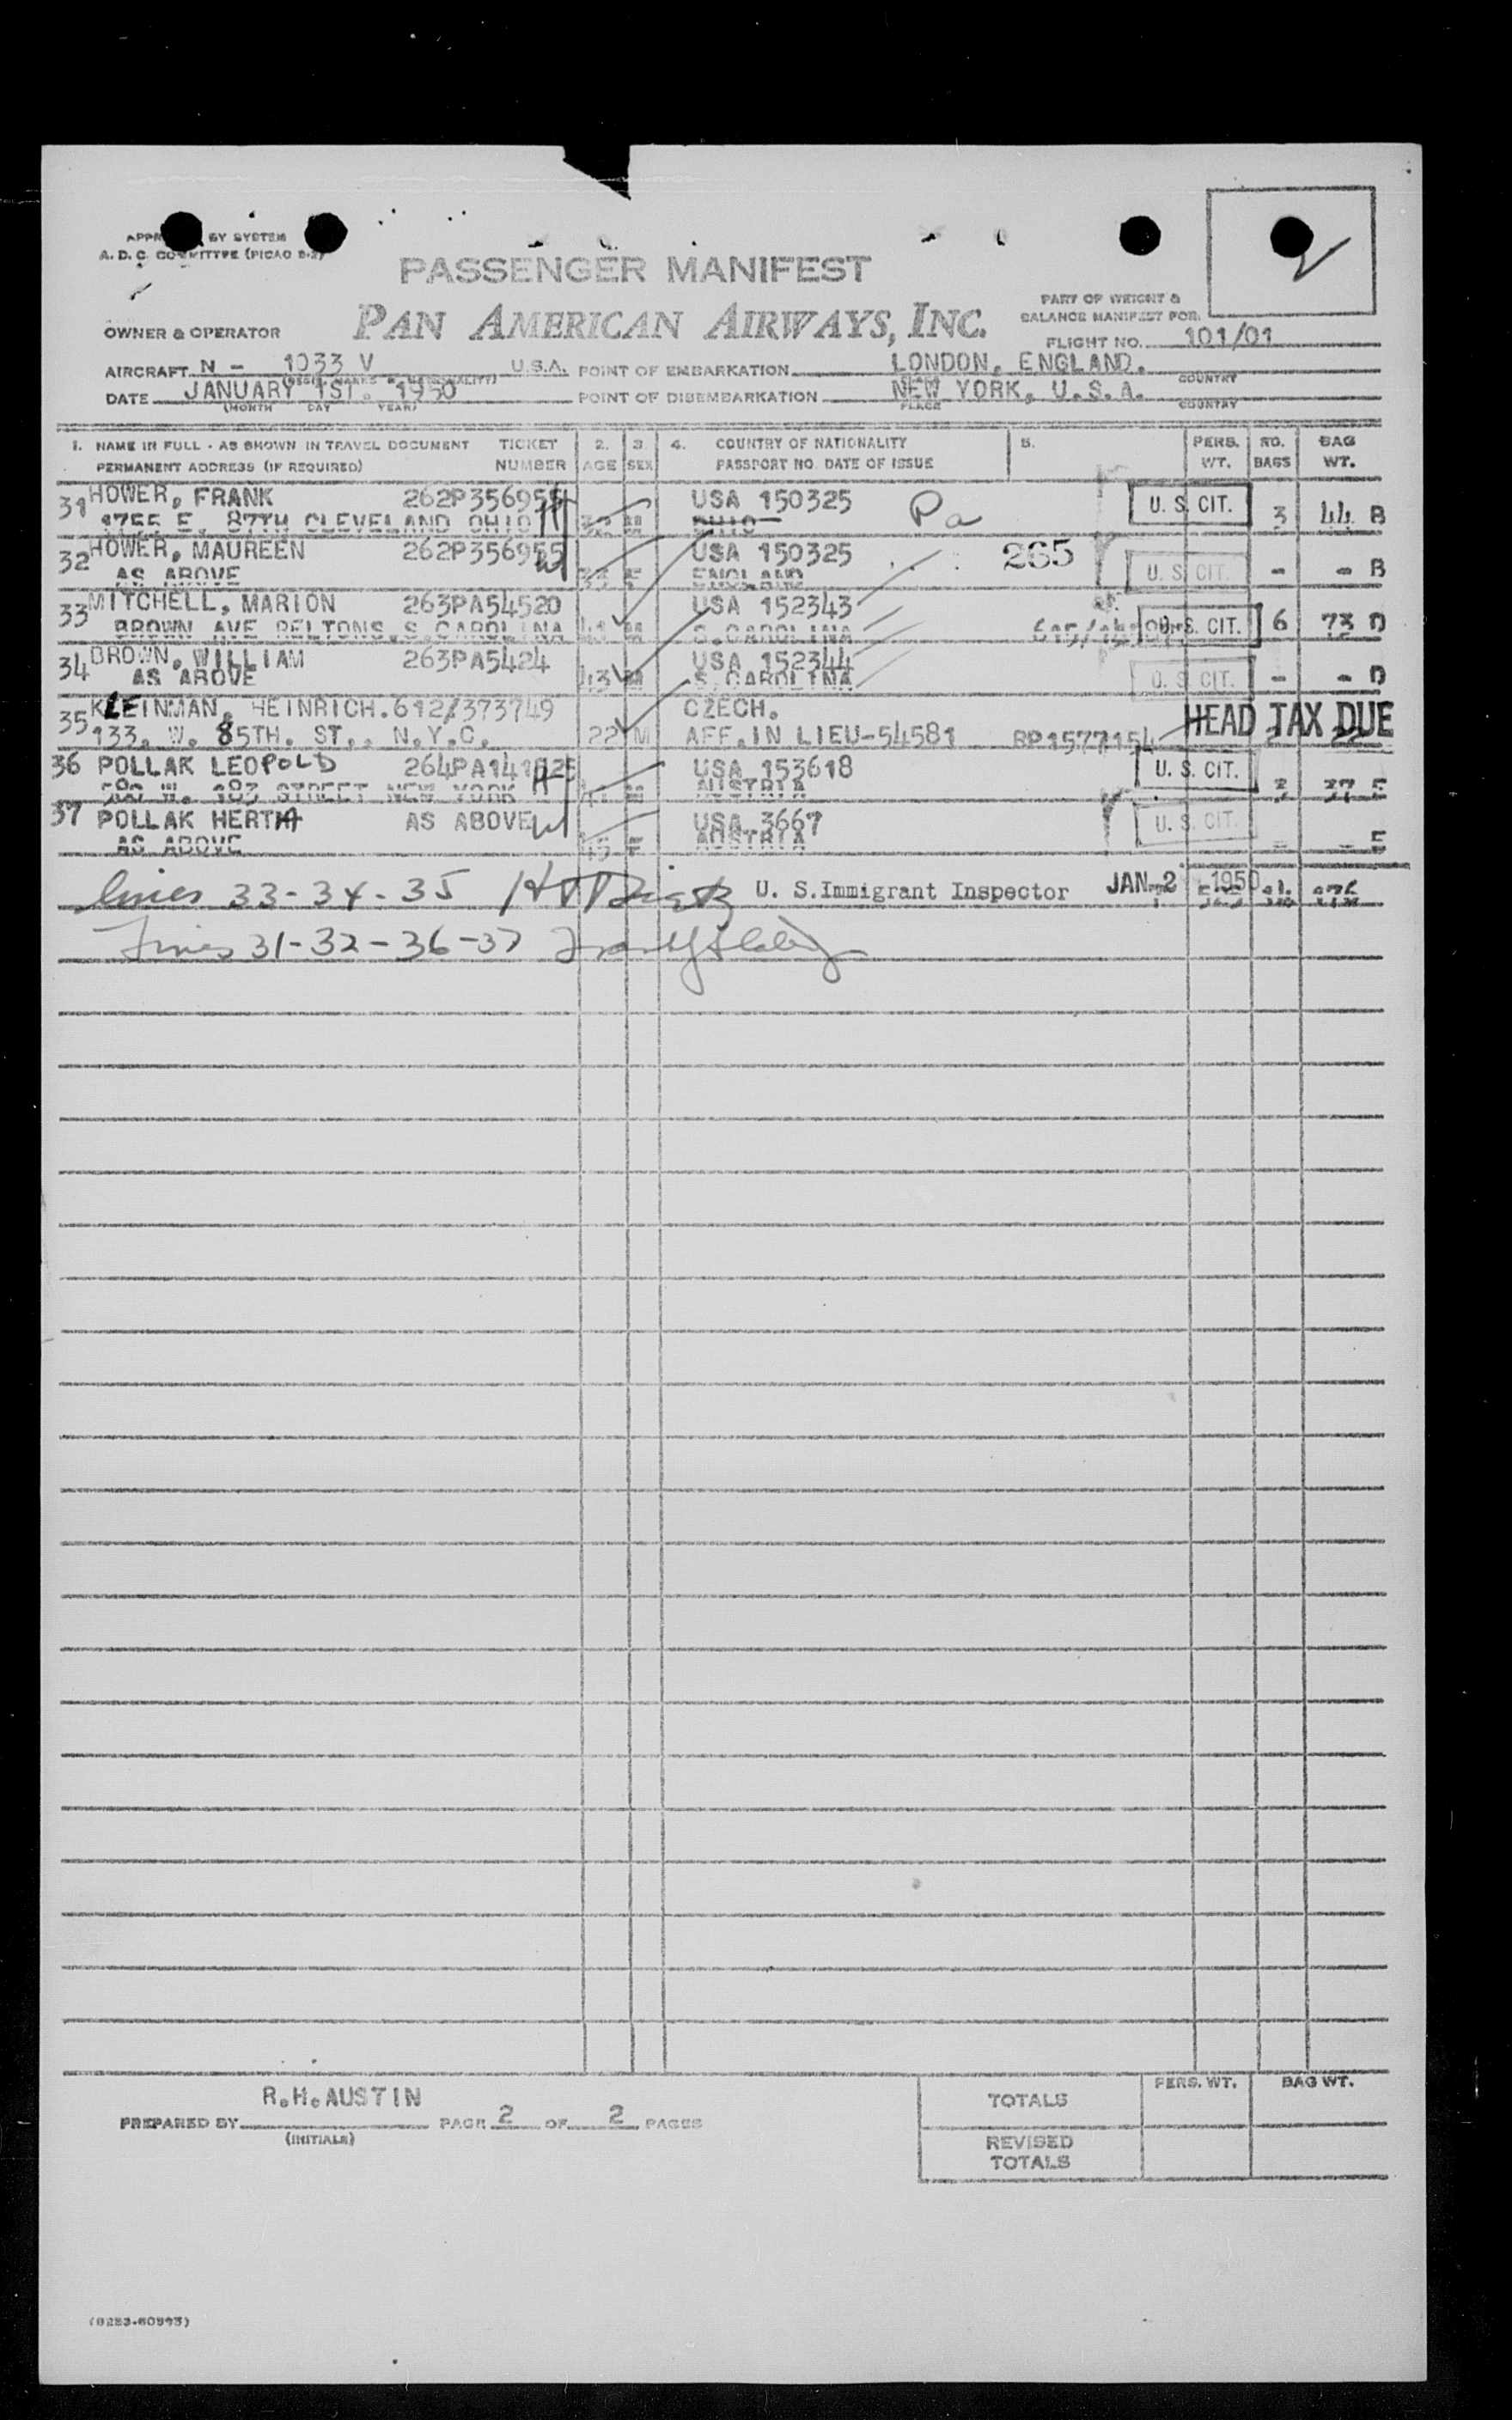 BY SYSTEM
A. D. C. COMMITTEE (PICAO
PASSENGER MANIFEST
PAN AMERICAN AIRWAYS, INC.
OWNER & OPERATOR
PART OF WEIGHT &
BALANCE MANIFEST FOR
FLIGHT NO. 101/01
AIRCRAFT N - 1033 V U.S.A. POINT OF EMBARKATION LONDON, ENGLAND.
COUNTRY
DATE JANUARY 1ST. 1950 POINT OF DISEMBARKATION NEW YORK, U.S.A.
(MONTH DAY YEAR) PLACE COUNTRY
1. NAME IN FULL - AS SHOWN IN TRAVEL DOCUMENT TICKET 2. 3 4. COUNTRY OF NATIONALITY 5. PERS. NO. BAG
PERMANENT ADDRESS (IF REQUIRED) NUMBER AGE SEX PASSPORT NO. DATE OF ISSUE WT. BAGS WT.
31 HOWER, FRANK 262P356955 USA 150325 Pa U. S. CIT.
1755 E. 87TH CLEVELAND OHIO 32 M OHIO 3 44 B
32 HOWER, MAUREEN 262P356955 USA 150325 265 U. S. CIT.
AS ABOVE F ENGLAND - - B
33 MITCHELL, MARION 263PA54520 USA 152343 U. S. CIT. 6 73 D
BROWN AVE BELTONS. S. CAROLINA M S. CAROLINA
34 BROWN, WILLIAM 263PA5424 USA 152344 U. S. CIT.
AS ABOVE 43 M S. CAROLINA - - D
35 KLEINMAN, HEINRICH. 612/373749 CZECH. HEAD TAX DUE
133. W. 85TH. ST., N.Y.C. 22 M AFF. IN LIEU-54581 RP1577154
36 POLLAK LEOPOLD USA 153618 U. S. CIT.
W. 183 STREET NEW YORK M AUSTRIA 3 37 E
37 POLLAK HERTHA AS ABOVE USA 3667 U. S. CIT.
AS ABOVE 45 F AUSTRIA - - E
lines 33-34-35 U. S. Immigrant Inspector JAN 2 1950
Lines 31-32-36-37
R.H. AUSTIN
PREPARED BY PAGE 2 OF 2 PAGES
(INITIALS)
PERS. WT. BAG WT.
TOTALS
REVISED
TOTALS